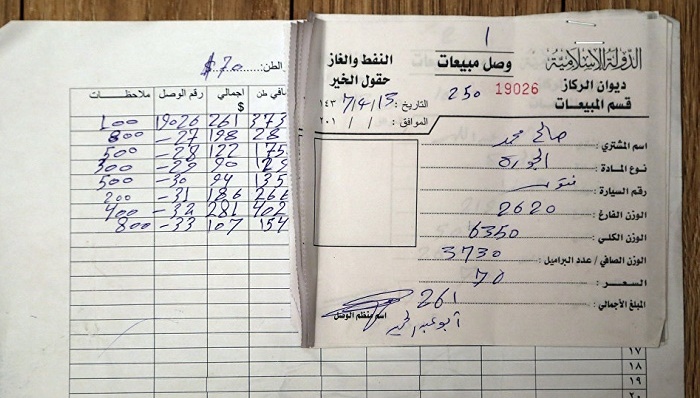 الدولة الإسلامية
ديوان الركاز
قسم المبيعات
1
وصل مبيعات
250 19026
النفط والغاز
حقول الخير
التاريخ : 15/4/7 ١٤٣
الموافق : / / ٢٠١
اسم المشتري : صالح محمد
نوع المادة :
رقم السيارة :
الوزن الفارغ : 2620
الوزن الكلي : 6350
الوزن الصافي / عدد البراميل : 3730
السعر : 70
المبلغ الأجمالي : 261
اسم منظم الوصل
الطن: $ 70
ملاحظات رقم الوصل اجمالي $ طن
100 19026 261 373
800 -27 198 28
500 -28 122 175
300 -29 90
500 -30 94 135
200 -31 186 266
400 -32 281 402
800 -33 107 154
١٧
١٨
١٩
٢٠